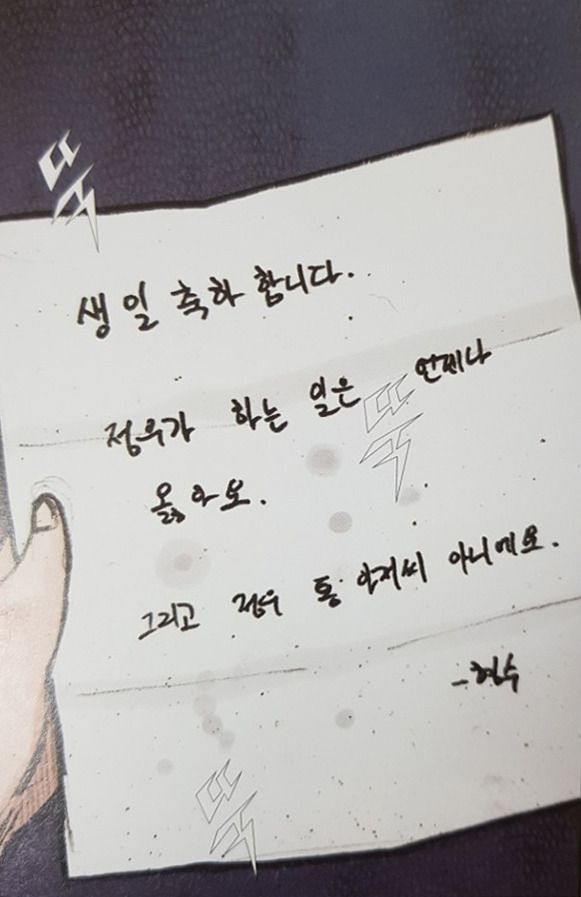 뚝
생일 축하 합니다.
정우가 하는 일은 언제나
뚝
옳아요.
그리고 정우 통 아저씨 아니에요.
-현수
뚝